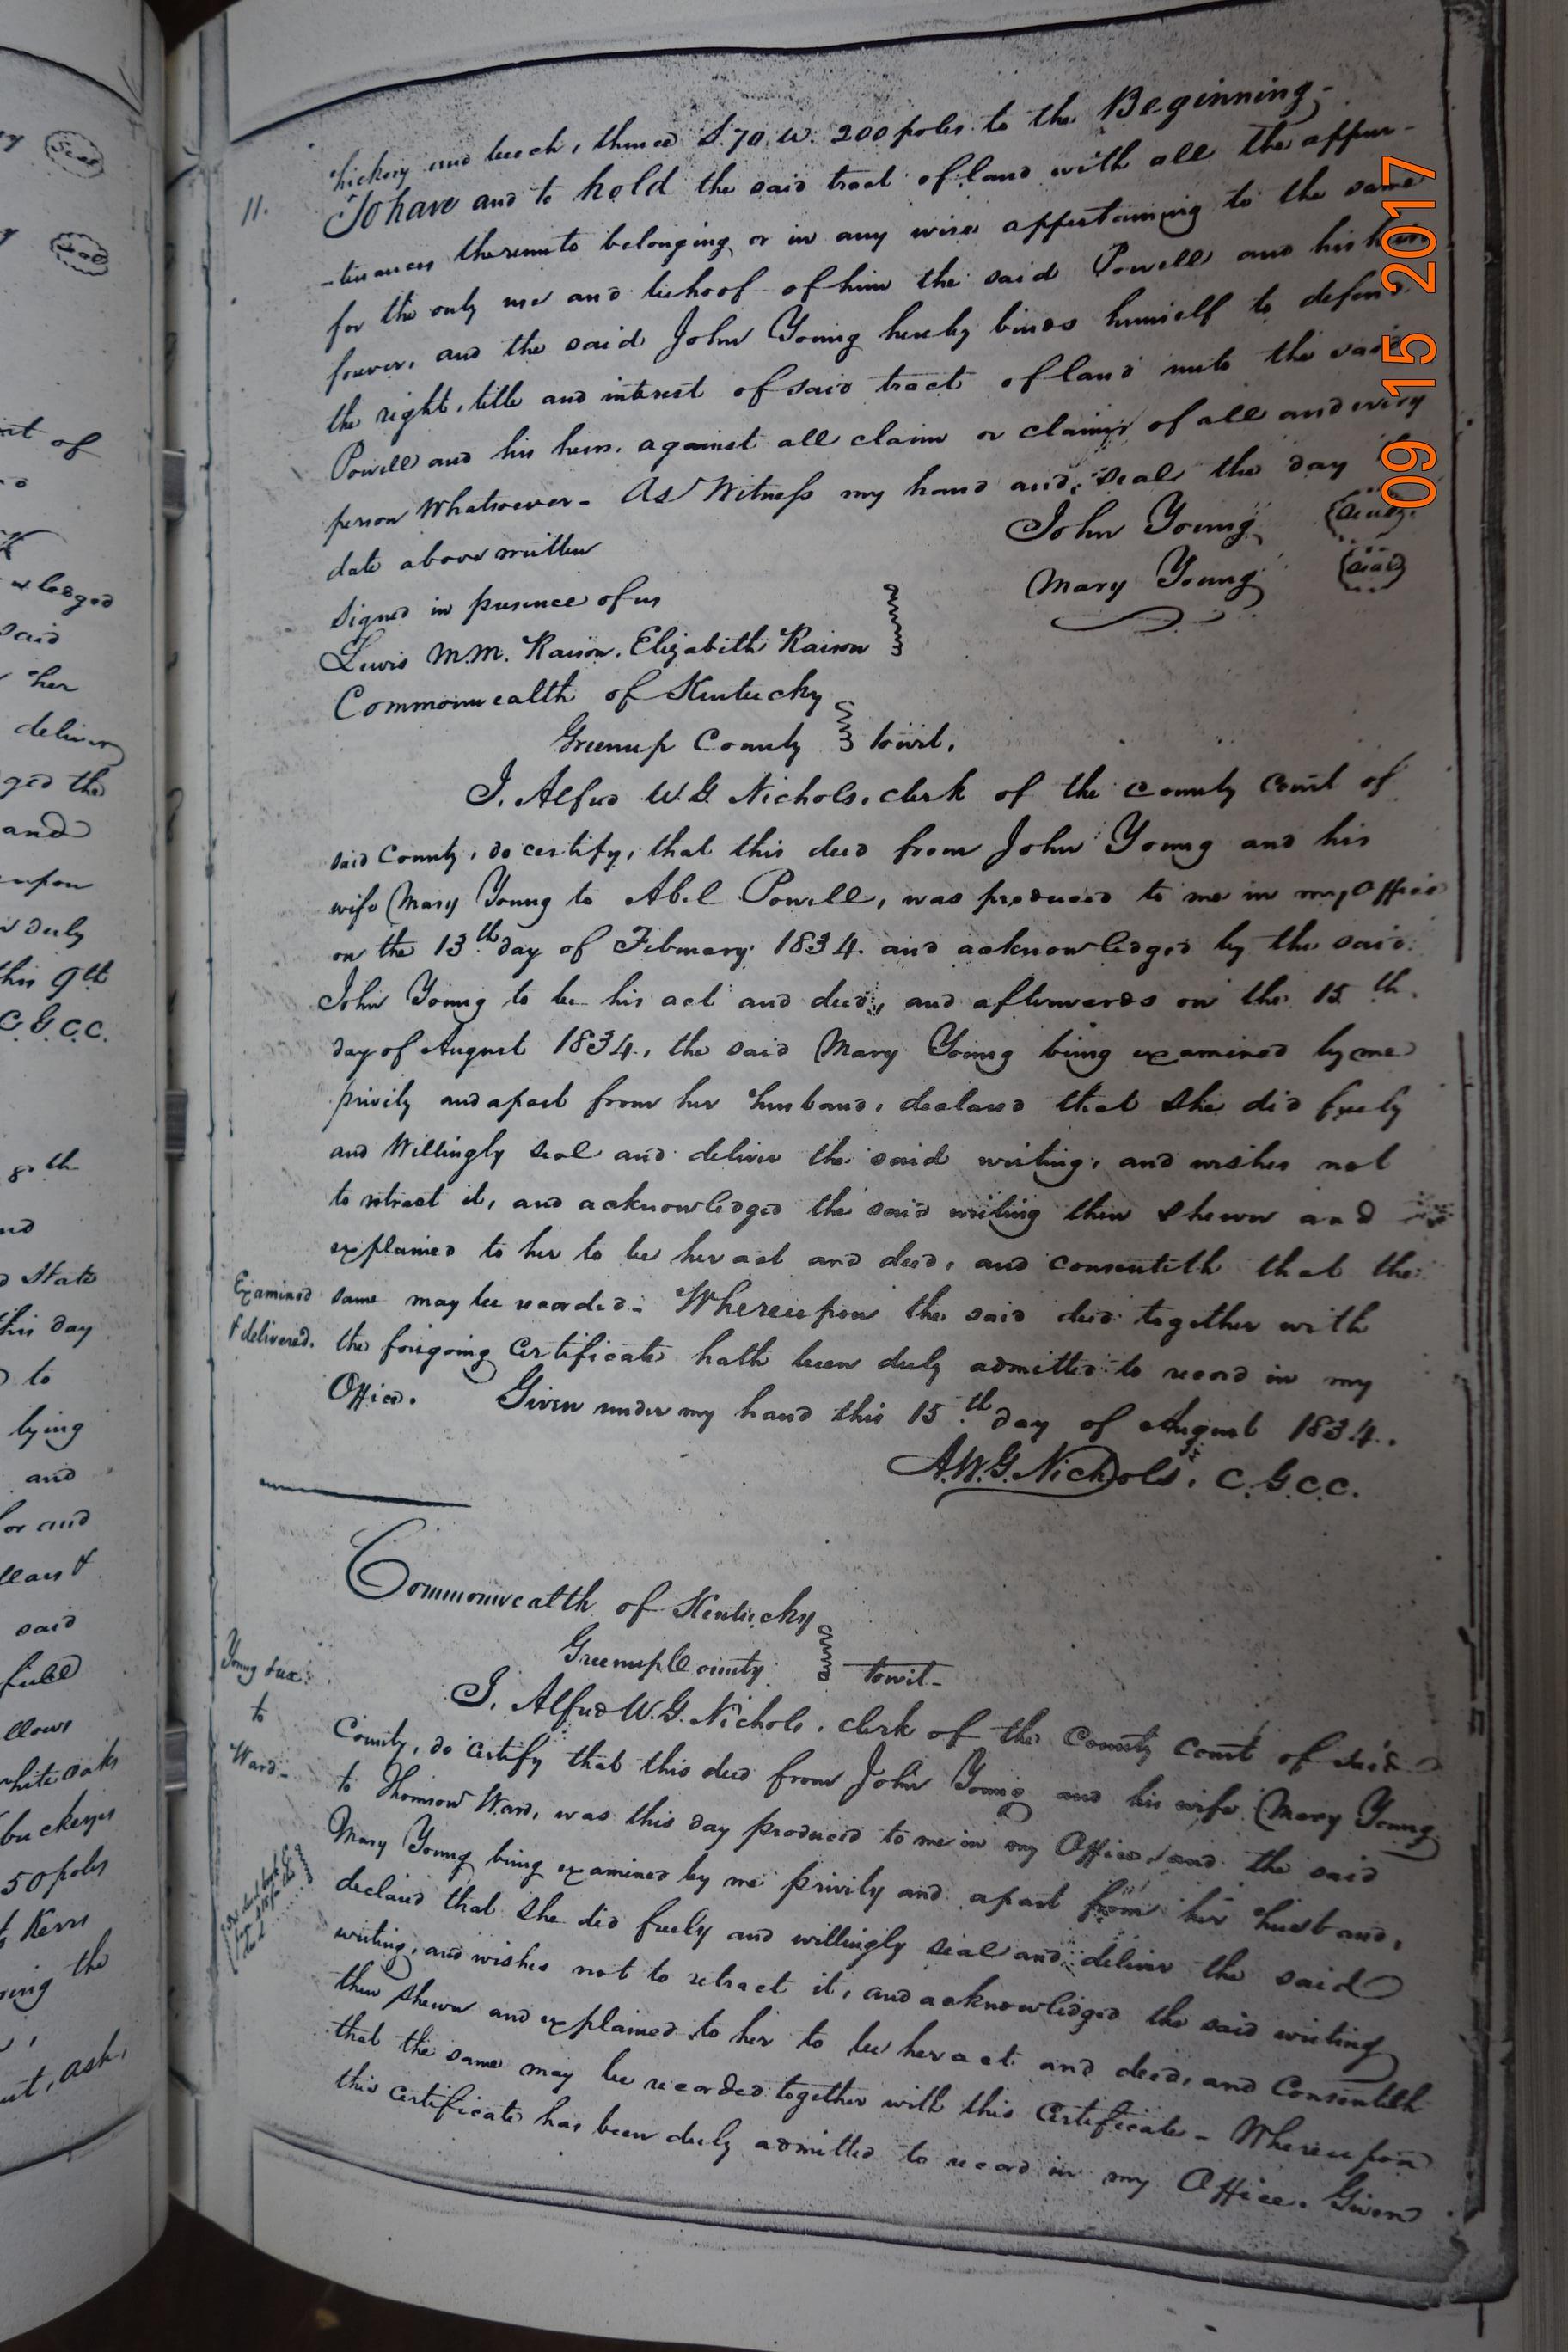 11.
hickory and beech, thence S. 70. W. 200 poles to the Beginning,-
To have and to hold the said tract of land with all the appur-
-tenances thereunto belonging or in any wise appertaining to the same
for the only use and behoof of him the said Powell and his heirs
forever, and the said John Young hereby binds himself to defend
the right, title and interest of said tract of land unto the said
Powell and his heirs, against all claim or claims of all and every
person whatsoever - As Witness my hand and seal the day
date above written
John Young Seal
Mary Young Seal
Signed in presence of us
Lewis M.M. Raison. Elizabeth Raison
Commonwealth of Kentucky
Greenup County towit,
I, Alfred W. G. Nichols, clerk of the County Court of
said County, do certify, that this deed from John Young and his
wife Mary Young to Abel Powell, was produced to me in my Office
on the 13th day of February 1834. and acknowledged by the said
John Young to be his act and deed, and afterwards on the 15th
day of August 1834, the said Mary Young being examined by me
privily and apart from her husband, declared that she did freely
and willingly seal and deliver the said writing, and wishes not
to retract it, and acknowledged the said writing then shewn and
explained to her to be her act and deed, and consenteth that the
Examined same may be recorded - Whereupon the said deed together with
& delivered. the foregoing certificate hath been duly admitted to record in my
Office. Given under my hand this 15th day of August 1834.
A.W.G. Nichols, C.G.C.C.
Commonwealth of Kentucky
Greenup County towit -
Young & ux.
to
Ward -
I, Alfred W. G. Nichols, clerk of the County Court of said
County, do certify that this deed from John Young and his wife Mary Young
to Thomson Ward, was this day produced to me in my Office, and the said
Mary Young being examined by me privily and apart from her husband,
declared that she did freely and willingly seal and deliver the said
writing, and wishes not to retract it, and acknowledged the said writing
then shewn and explained to her to be her act and deed, and consenteth
that the same may be recorded together with this certificate - Whereupon
this certificate has been duly admitted to record in my Office. Given
09 15 2017
Seal
Seal
of
said
her
deliver
ged the
and
upon
duly
this 9th
C.G.C.C.
8th
State
this day
to
lying
and
for and
said
full
white oaks
buckeyes
50 poles
Kerrs
the
ash,